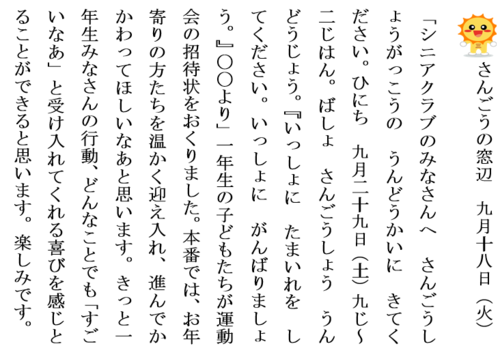 さんごうの窓辺　九月十八日（火）
「シニアクラブのみなさんへ　さんごうし
ょうがっこうの　うんどうかいに　きてく
ださい。ひにち　九月二十九日（土）九じ～
二じはん。ばしょ　さんごうしょう　うん
どうじょう。『いっしょに　たまいれを　し
てください。いっしょに　がんばりましょ
う。』『〇〇より」一年生の子どもたちが運動
会の招待状をおくりました。本番では、お年
寄りの方たちを温かく迎え入れ、進んでか
かわってほしいなあと思います。きっと一
年生みなさんの行動、どんなことでも「すご
いなあ」と受け入れてくれる喜びを感じと
ることができると思います。楽しみです。